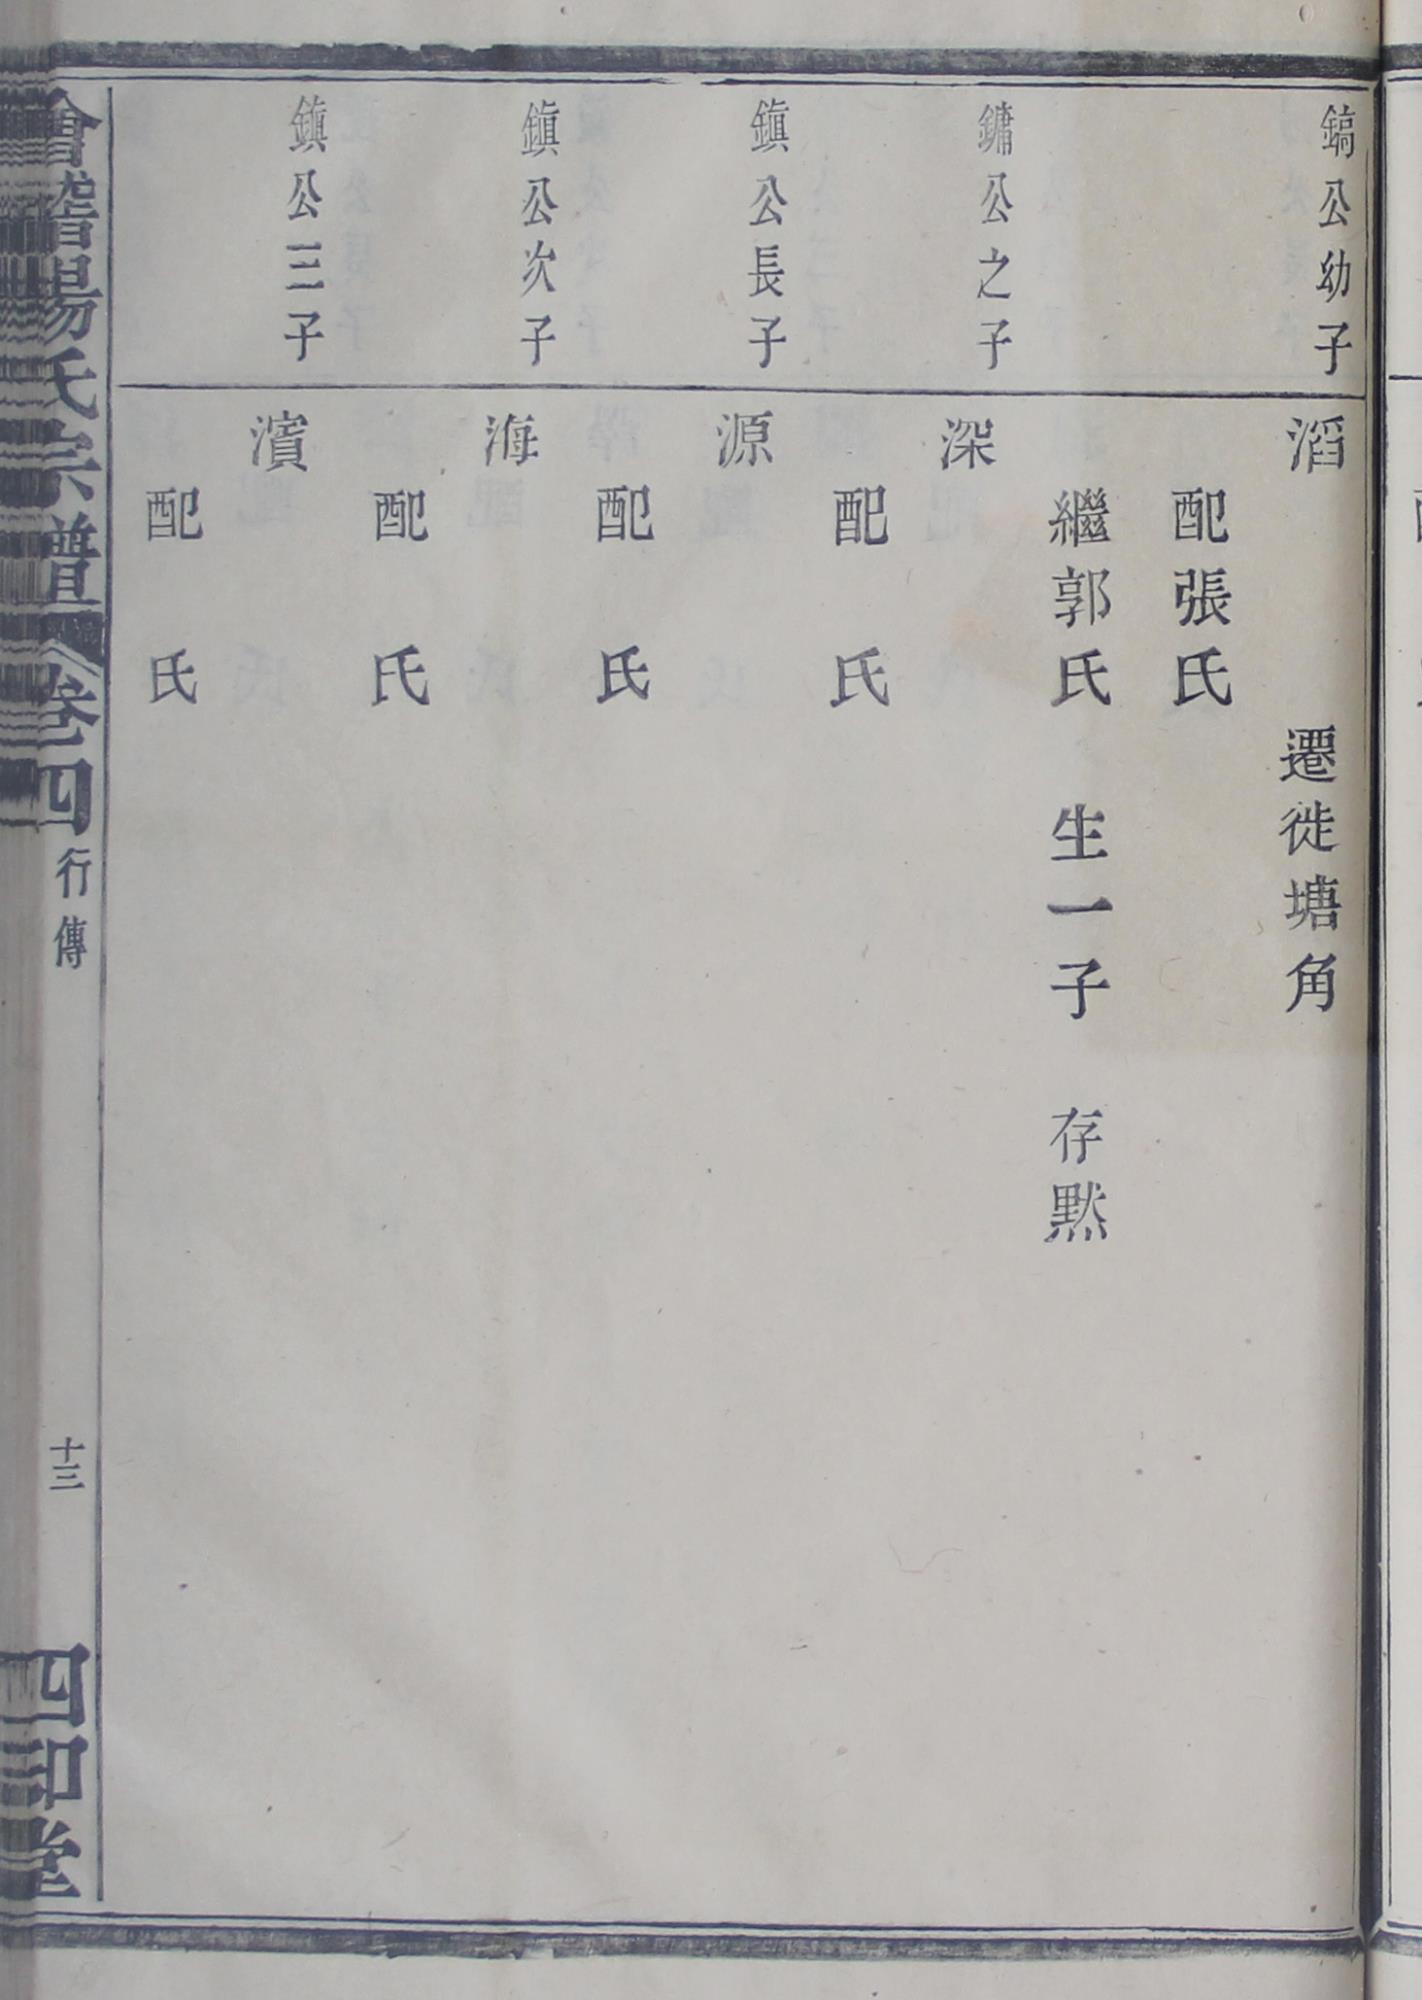 鎬公幼子
滔 遷徙塘角
配張氏
繼郭氏 生一子 存默
鏞公之子
深
配 氏
鎮公長子
源
配 氏
鎮公次子
海
配 氏
鎮公三子
濱
配 氏
會稽楊氏宗譜 卷四 行傳 十三 四印堂